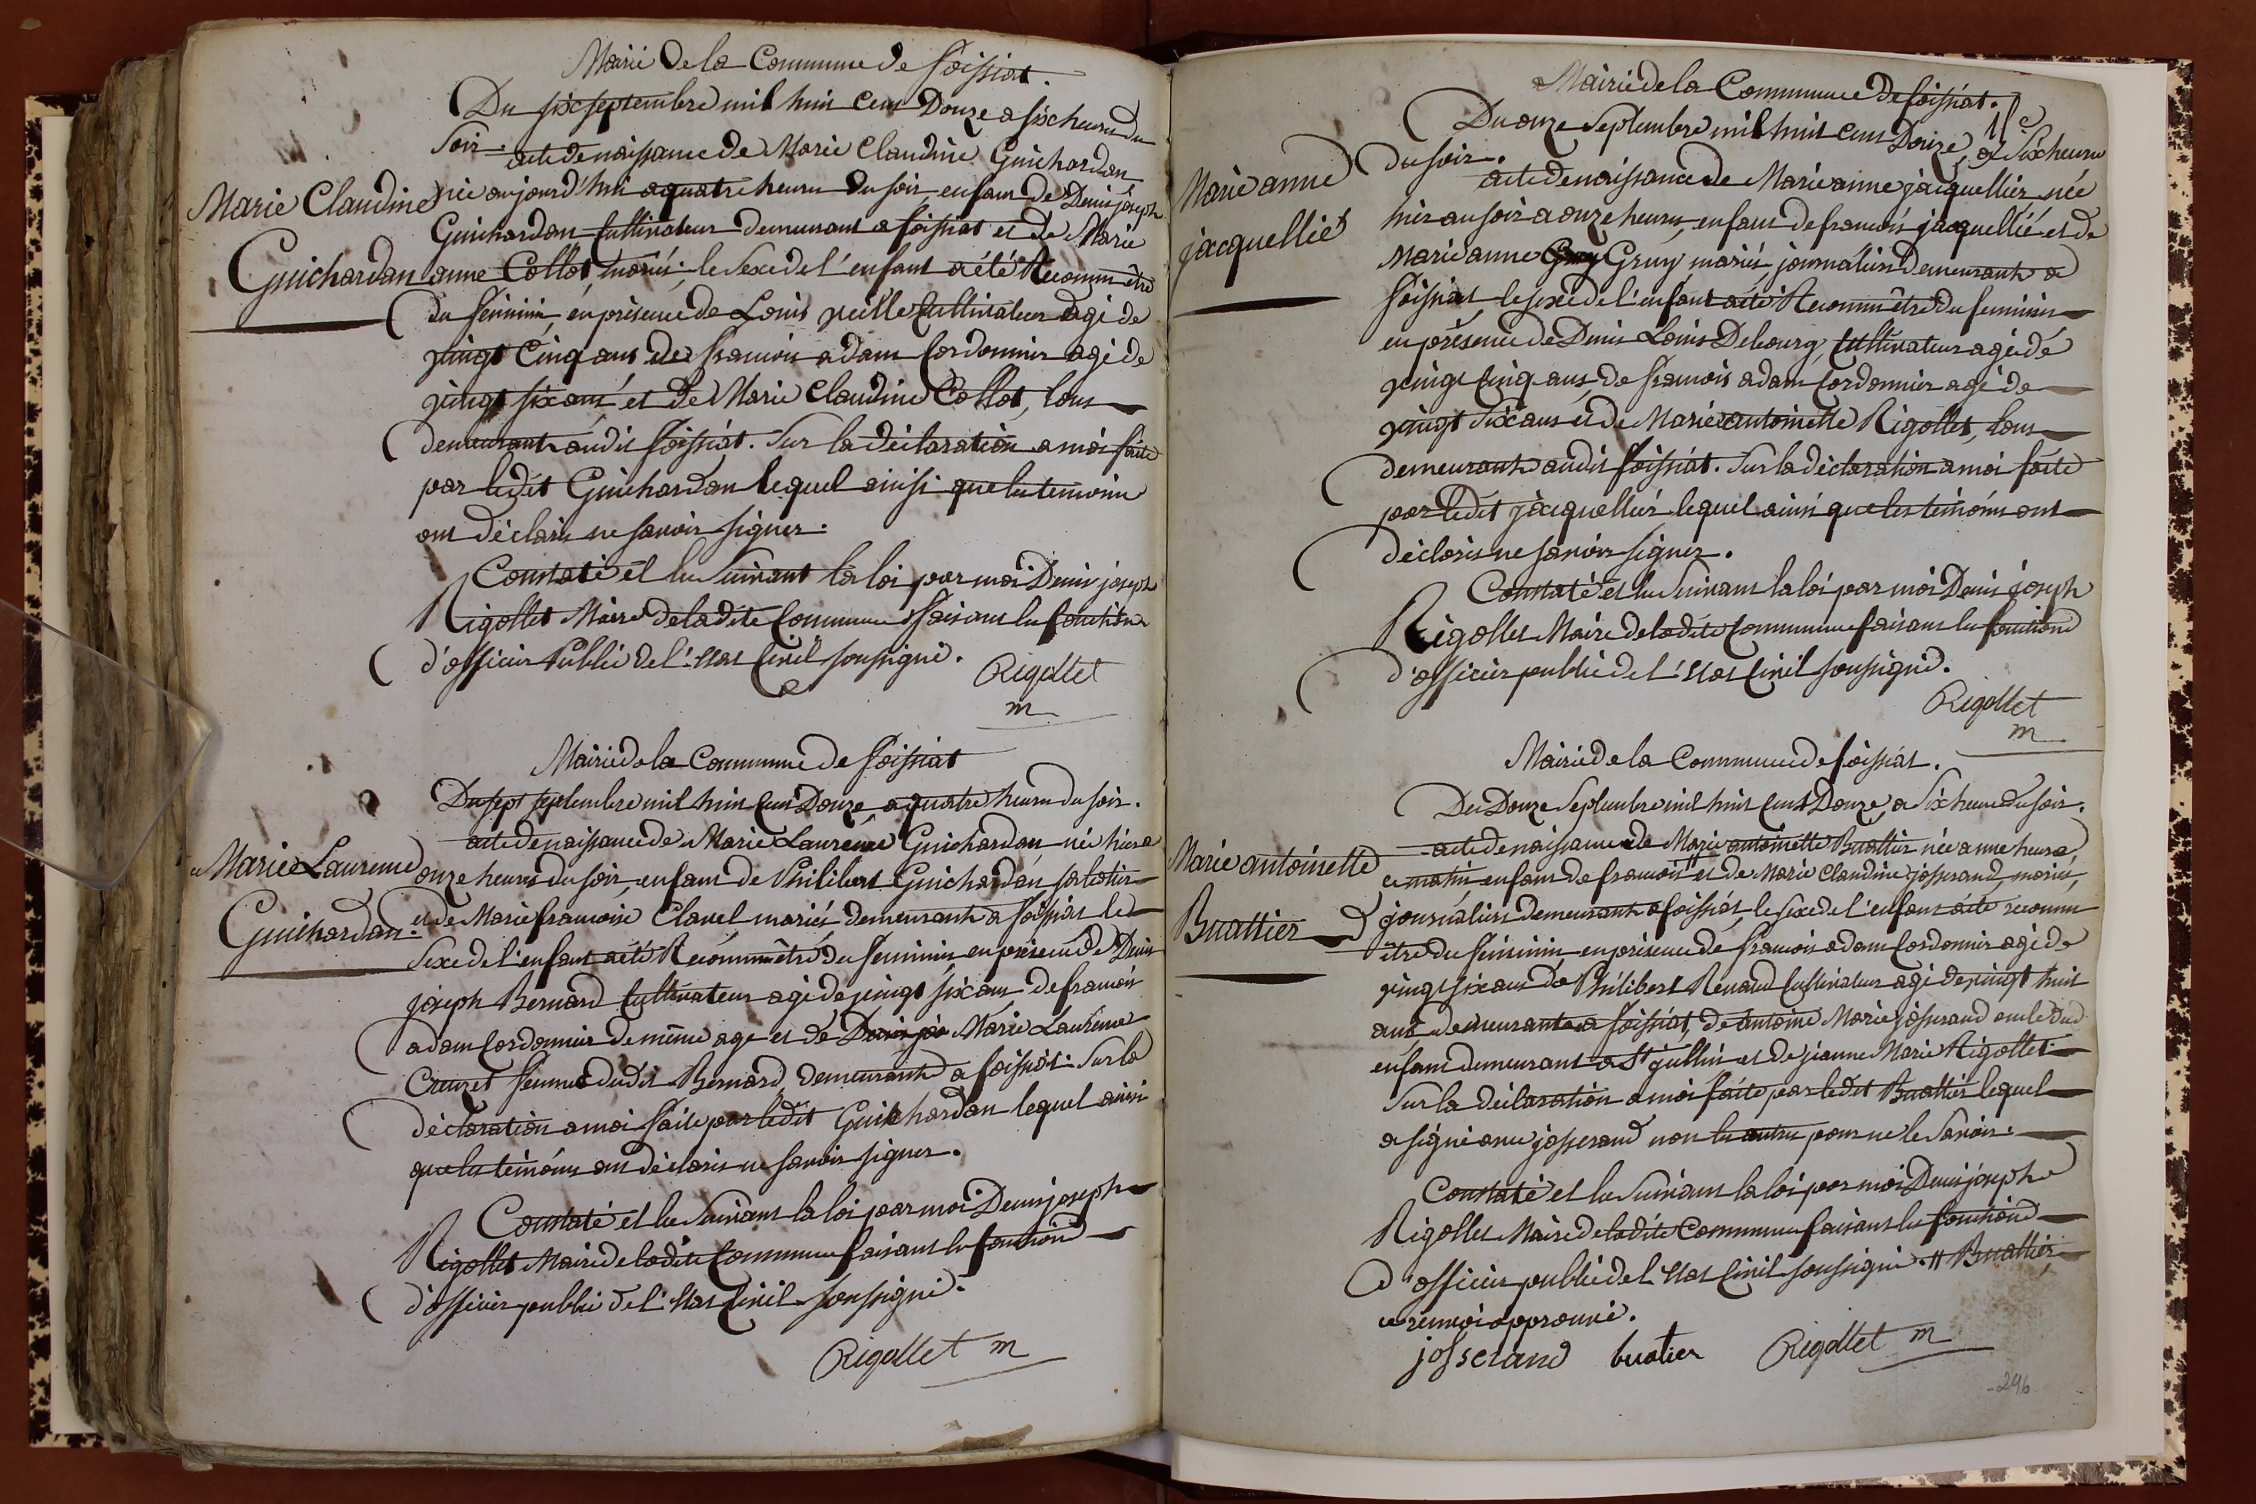 Mairie de la Commune de foissiat.
Du six septembre mil huit cent Douze a six heures du
soir.
acte de naissance de Marie Claudine Guichardan
Marie Claudine
Guichardan
née aujourd'hui a quatre heures du soir, enfant de Denis joseph
Guichardan Cultivateur demeurant a foissiat et de Marie
anne Collot, mariés; le sexe de l'enfant a été Reconnu être
du féminin, en présence de Louis Cultivateur agé de
vingt Cinq ans, de françois adam Cordonnier agé de
vingt six ans et de Marie Claudine Collot, tous
demeurants audit foissiat. Sur la déclaration a moi faite
par ledit Guichardan lequel ainsi que les temoins
ont déclarés ne savoir signer.
Constaté et lu Suivant la loi par moi Denis joseph
Rigollet Maire de ladite Commune faisant les fonctions
d'officier Public de l'Etat Civil soussigné.
Rigollet
m
Mairie de la Commune de foissiat
Du sept septembre mil huit cent Douze, a quatre heures du soir.
acte de naissance de Marie Laurence Guichardan née hier a
Marie Laurence
Guichardan.
onze heures du soir, enfant de Philibert Guichardan
et de Marie françoise Clavel mariés demeurants a foissiat le
Sexe de l'enfant a été Reconnu être du féminin en présence de Denis
joseph Bernard Cultivateur agé de vingt six ans de françois
adam Cordonnier de même age et de Marie Laurence
Creuzet femme dudit Bernard, demeurants a foissiat. Sur la
déclaration a moi faite par ledit Guichardan lequel ainsi
que les témoins ont déclarés ne savoir signer.
Constaté et lu Suivant la loi par moi Denis joseph
Rigollet Maire de ladite Commune faisant les fonctions
d'officier public de l'Etat Civil soussigné.
Rigollet m
Mairie de la Commune de foissiat.
Du onze Septembre mil huit cent Douze, a Six heures
du soir.
Marie anne
jacquellié
acte de naissance de Marie anne jacquellier née
hier au soir a onze heures, enfant de francois jacquellié et de
Marie anne Gruy mariés journaliers demeurants a
foissiat le sexe de l'enfant a été Reconnu être du feminin
en présence de Denis Louis Debourg, Cultivateur agé de
vingt Cinq ans de francois adam Cordonnier agé de
vingt Six ans et de Marie antoinette Rigollet, tous
demeurants audit foissiat. Sur la déclaration a moi faite
par ledit jacquellier lequel ainsi que les témoins ont
déclarés ne savoir signer.
Constaté et lu Suivant la loi par moi Denis joseph
Rigollet Maire de ladite Commune faisant les fonctions
d'officier public de l'Etat Civil soussigné.
Rigollet
m
Mairie de la Commune de foissiat.
Du Douze Septembre mil huit Cent Douze, a Six heures du soir.
acte de naissance de Marie antoinette Buattier née a une heure
Marie antoinette
Buattier
ce matin enfant de francois // et de Marie Claudine josserand, mariés,
journaliers demeurants a foissiat, le sexe de l'enfant a été reconnu
être du féminin en présence de francois adam Cordonnier agé de
vingt six ans de Philibert Renaud Cultivateur agé de vingt huit
ans, demeurants a foissiat, de antoine Marie josserand oncle dud
enfant demeurant a St jullin et de jeanne Marie Rigollet
Sur la déclaration a moi faite par ledit Buattier lequel
a signé avec josserand non les autres pour ne le Savoir.
Constaté et lu Suivant la loi par moi Denis joseph
Rigollet Maire de ladite Commune faisant les fonctions
d'officier public de l'Etat Civil soussigné. // Buattier
ce renvoi approuvé.
josserand buatier Rigollet m
296